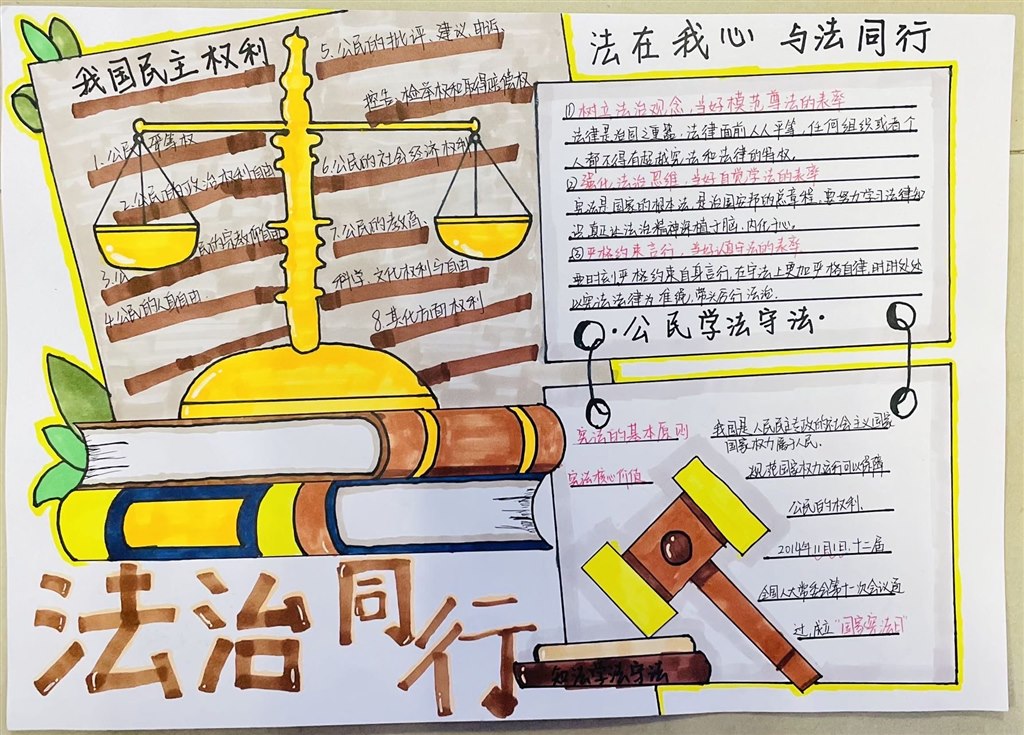 我国民主权利
1.公民平等权
2.公民的政治权利自由
3.公民的宗教信仰自由
4.公民的人身自由.
5.公民的批评、建议、申诉、
控告、检举权和取得赔偿权
6.公民的社会经济权利
7.公民的教育、
科学、文化权利与自由
8.其他方面权利
法在我心 与法同行
①树立法治观念,当好模范尊法的表率
法律是治国之重器.法律面前人人平等,任何组织或者个
人都不得有超越宪法和法律的特权.
②强化法治思维,当好自觉学法的表率
宪法是国家的根本法,是治国安邦的总章程,要努力学习法律知
识真正让法治精神深植于脑,内化于心.
③严格约束言行,当好遵守法的表率
要时刻严格约束自身言行,在守法上更加严格自律,时时处处
以宪法法律为准绳,带头厉行法治.
·公民学法守法·
宪法的基本原则
宪法核心价值
我国是人民民主专政的社会主义国家
国家权力属于人民.
规范国家权力运行可以保障
公民的权利.
2014年11月1日.十二届
全国人大常委会第十一次会议通
过,成立"国家宪法日"
知法学法守法
法治同行